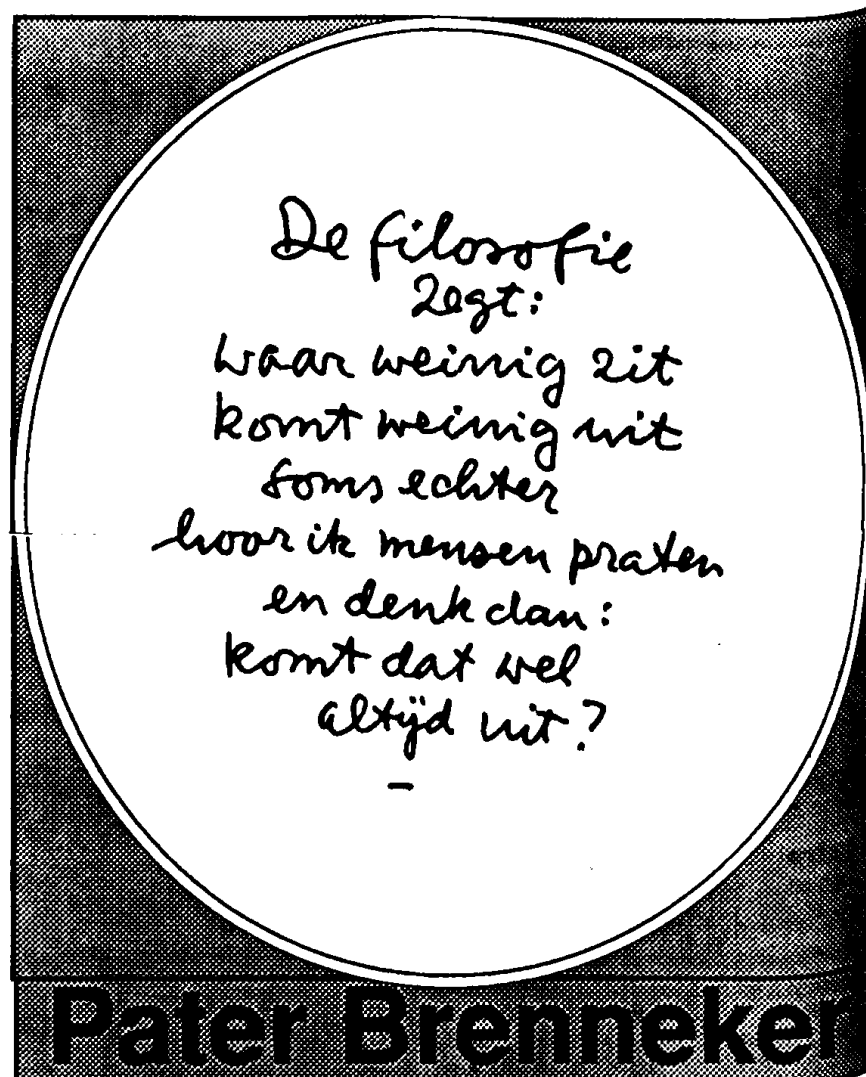 De filosofie
zegt:
waar weinig zit
komt weinig uit
soms echter
hoor ik mensen praten
en denk dan:
komt dat wel
altijd uit?
–
Pater Brenneker